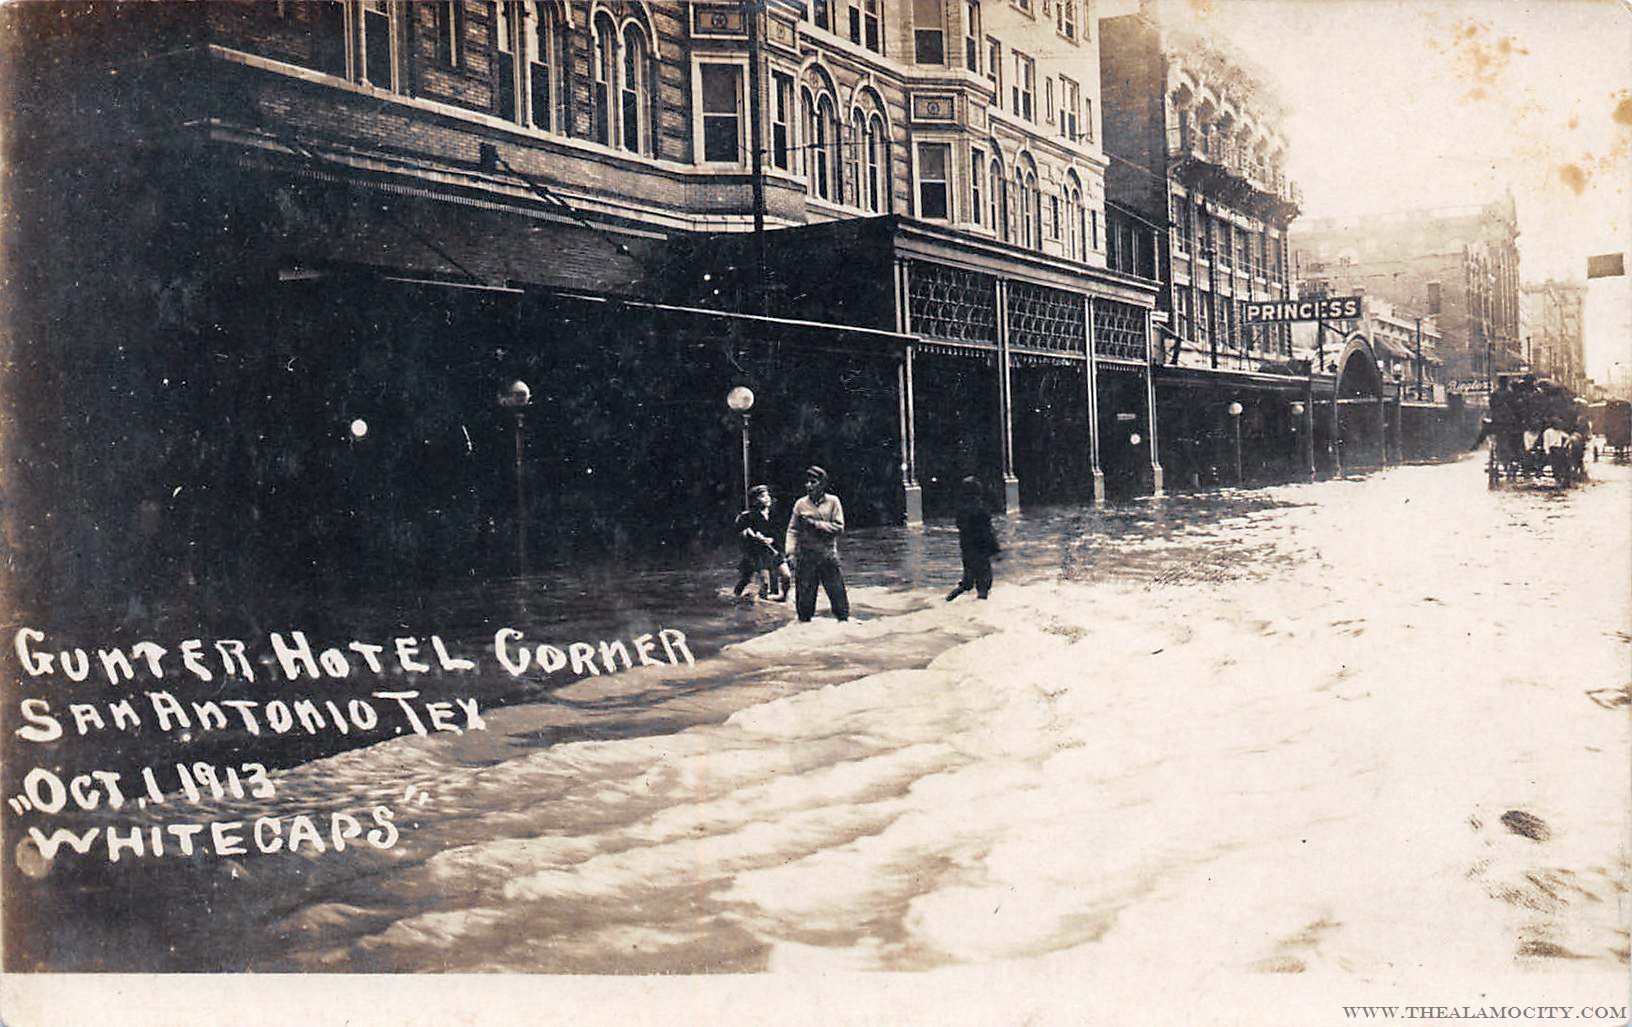 GUNTER HOTEL CORNER
SAN ANTONIO TEX
OCT. 1 1913
"WHITECAPS"
PRINCESS
WWW.THEALAMOCITY.COM